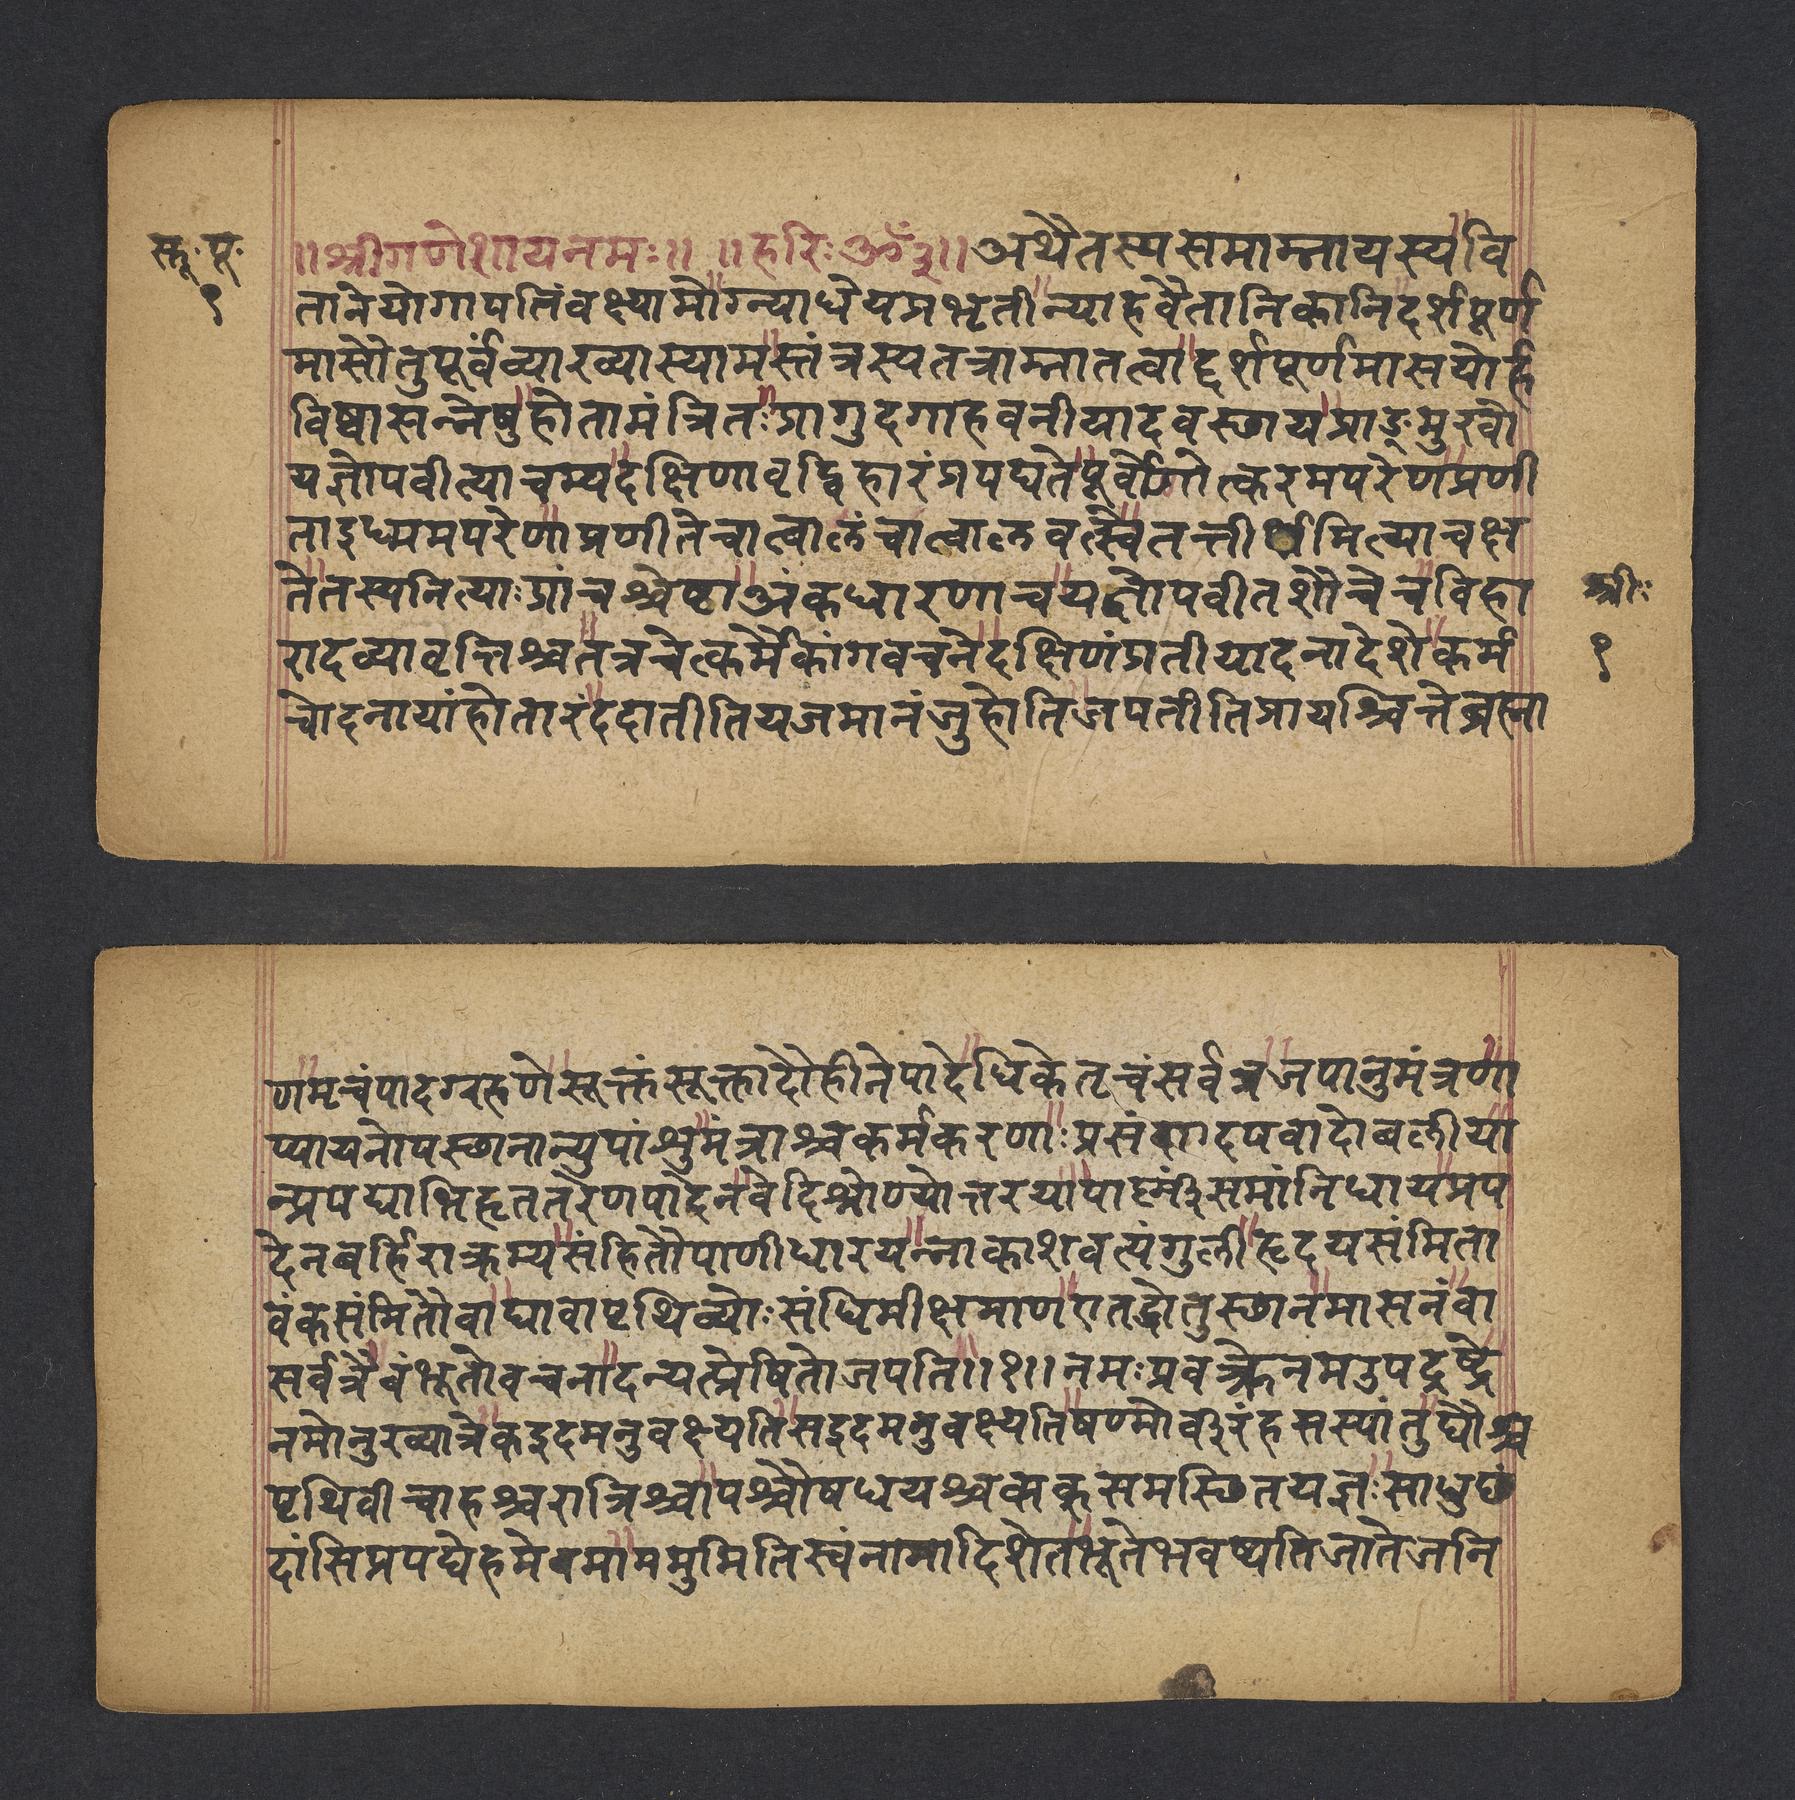 सू. पू.
१
॥श्रीगणेशायनमः॥ ॥हरिःॐ३॥अथैतस्यसमाम्नायस्यवि
तानेयोगापत्तिंवक्ष्यामोग्न्याधेयप्रभृतीन्याहवैतानिकानिदर्शपूर्ण
मासौतुपूर्वंव्याख्यास्यामस्तंत्रस्यतत्राम्नातत्वाद्दर्शपूर्णमासयोर्ह
विष्वासन्नेषुहोतामंत्रितःप्रागुदगाहवनीयादवस्छायप्राङ्मुखो
यज्ञोपवीत्याचम्यदक्षिणावृद्विहारंप्रपद्यतेपूर्वेणोत्करमपरेणप्रणी
ताइध्ममपरेणाप्रणीतेचात्वालंचात्वालवत्स्वेतत्तीर्थमित्याचक्ष
तेतस्यनित्याःप्रांचश्चेष्टाअंकधारणाचयज्ञोपवीतशौचेचविहा
रादव्यावृत्तिश्चतत्रचेत्कर्मैकांगवचनेदक्षिणंप्रतीयादनादेशेकर्म
चोदनायांहोतारंददातीतियजमानंजुहोतिजपतीतिप्रायश्चित्तेब्रह्मा
श्रीः
१
णमृचंपादग्रहणेसूक्तंसूक्तादौहीनेपादेधिकेतृचंसर्वत्रजपानुमंत्रणा
प्यायनोपस्छानान्युपांश्रुमंत्राश्चकर्मकरणाःप्रसंगादपवादोबलीया
न्प्रपद्याभिहृततरेणपादेनवेदिश्रोण्योत्तरयापार्ष्णं३समांनिधायप्रप
देनबर्हिराक्रम्यसंहितौपाणीधारयन्नाकाशवत्यंगुलीहृदयसंमिता
वंकसंमितौवाद्यावापृथिव्योःसंधिमीक्षमाणएतद्धोतुस्छानमासनंवा
सर्वत्रैवंभूतोवचनादन्यत्प्रेषितोजपति॥१॥नमःप्रवक्त्रेनमउपद्रष्ट्रे
नमोनुख्यात्रेकइदमनुवक्ष्यतिसइदमनुवक्ष्यतिषण्मोव३रंहसस्पांतुद्यौश्च
पृथिवीचाहश्चरात्रिश्चापश्चौषधयश्चवाक्समस्छितयज्ञःसाधुछं
दांसिप्रपद्येहमेवमाममुमितिस्वंनामादिशेतभूतेभवष्यतिजातेजनि